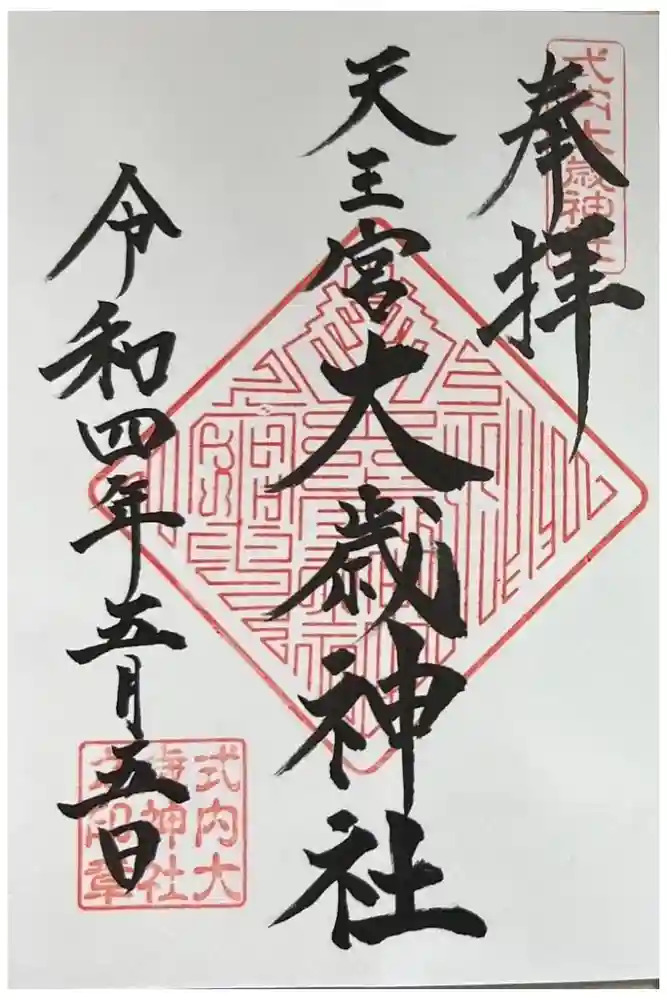 奉拝
式内大歳神社
天王宮大歳神社
令和四年五月五日
式内大
歳神社
之印章